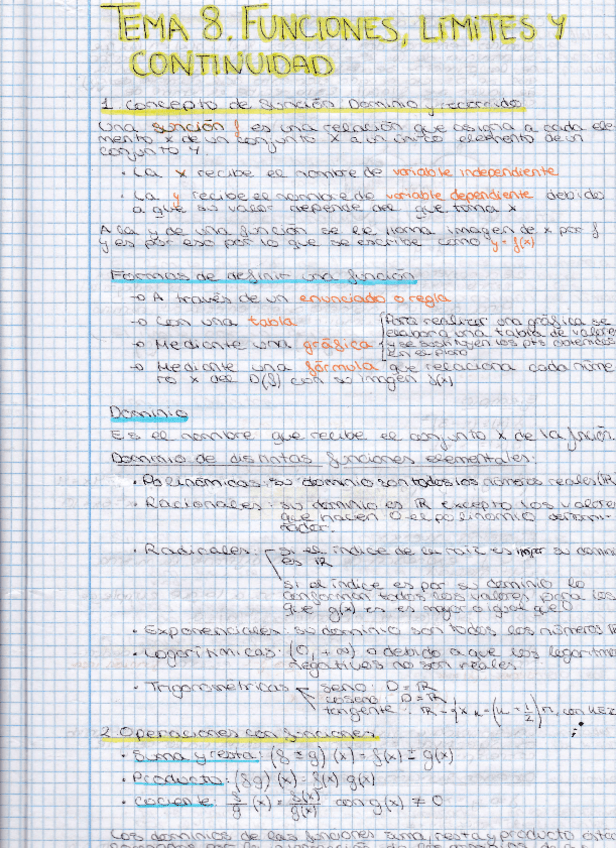 TEMA 8. FUNCIONES, LÍMITES Y
CONTINUIDAD
1. Concepto de función. Dominio y recorrido
Una función f es una relación que asigna a cada ele-
mento x de un conjunto X a un único elemento de un
conjunto Y.
· La x recibe el nombre de variable independiente
· La y recibe el nombre de variable dependiente debido
a que su valor depende del que toma x
A la y de una función se le llama imagen de x por f
y es por eso por lo que se escribe como y = f(x)
Formas de definir una función
→ A través de un enunciado o regla
→ Con una tabla
→ Mediante una gráfica
Para realizar una gráfica se
elabora una tabla de valores
y se sustituyen los pts obtenidos
en el plano
→ Mediante una fórmula que relaciona cada núme-
ro x del D(f) con su imagen f(x)
Dominio
Es el nombre que recibe el conjunto X de la función.
Dominio de distintas funciones elementales:
· Polinómicas: su dominio son todos los números reales (IR
· Racionales: su dominio es IR excepto los valores
que hacen 0 el polinomio denomi-
nador.
· Radicales: si el índice de la raíz es impar su domin
es IR
si el índice es par su dominio lo
conforman todos los valores para los
que g(x) es es mayor o igual que 0
· Exponenciales: su dominio son todos los números IR
· Logarítmicas: (0, +∞) debido a que los logaritmos
negativos no son reales.
· Trigonométricas seno: D = IR
coseno: D = IR
tangente: IR - {x x = (k + 1/2)π, con k∈Z
2. Operaciones con funciones
· Suma y resta: (f ± g) (x) = f(x) ± g(x)
· Producto: (fg) (x) = f(x) g(x)
· Cociente: f/g (x) = f(x)/g(x) con g(x) ≠ 0
Los dominios de las funciones suma, resta y producto están